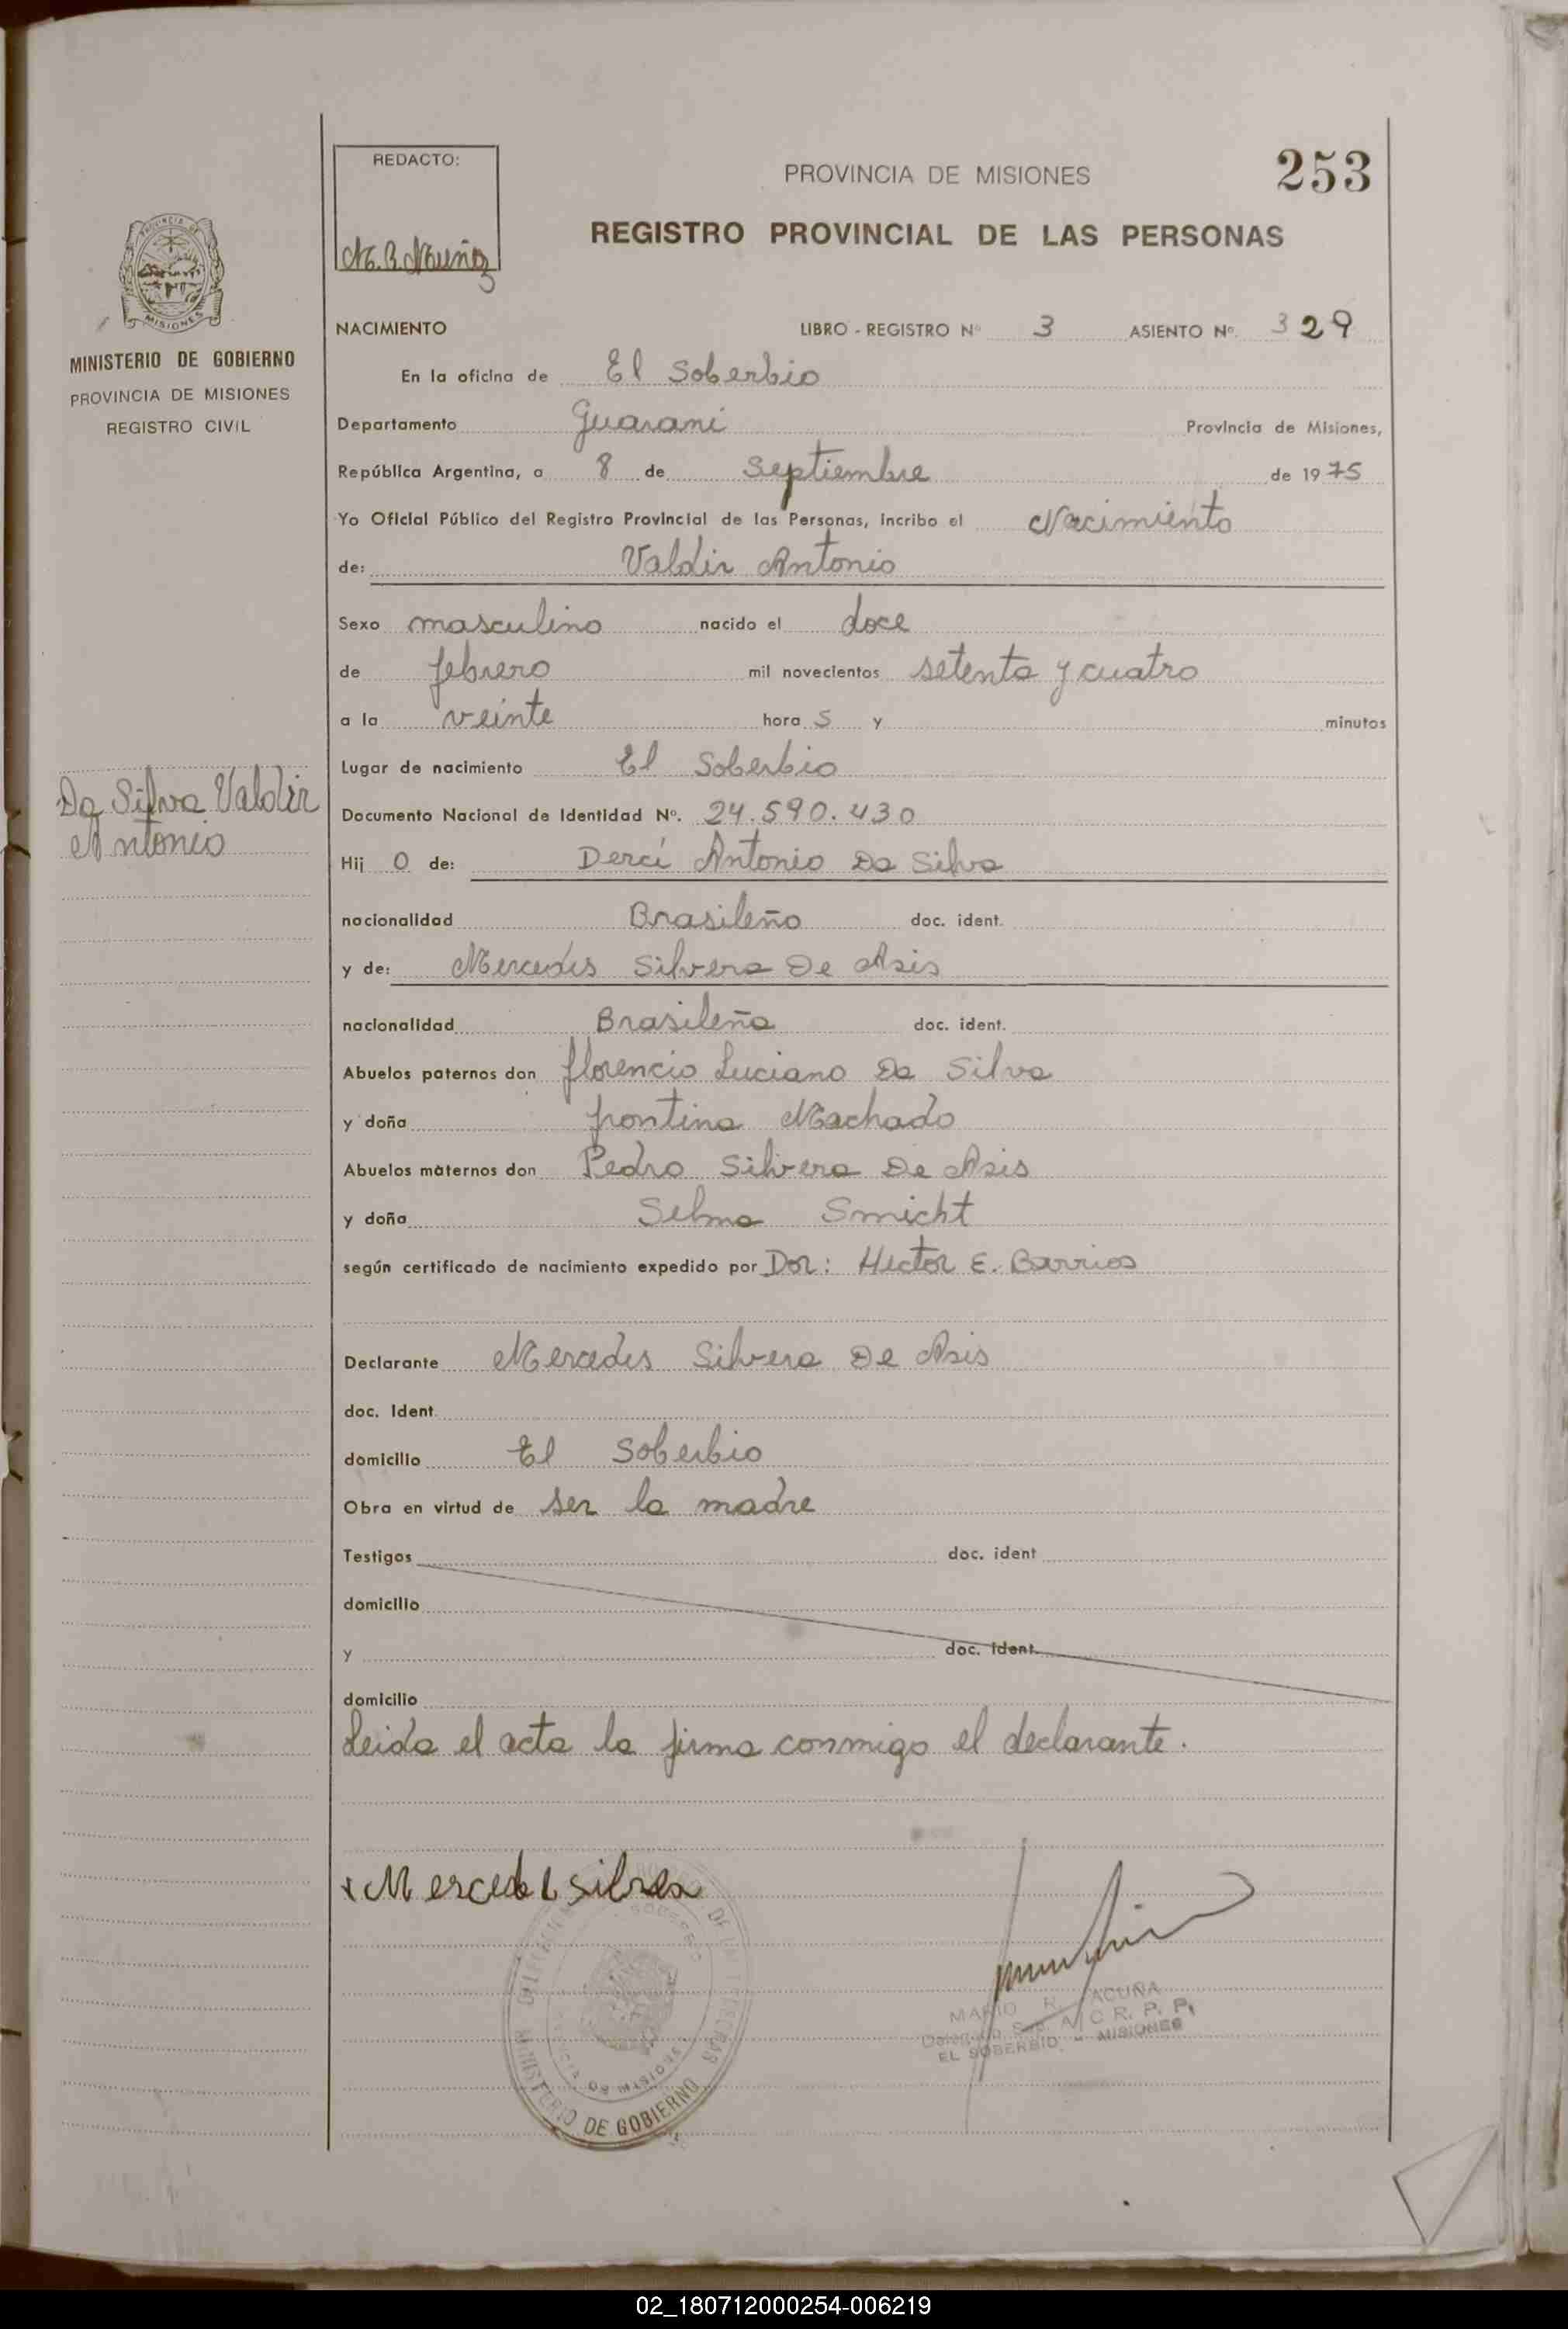 253
REDACTO:
PROVINCIA DE MISIONES
REGISTRO PROVINCIAL DE LAS PERSONAS
M. R. Muñoz
MISIONES
MINISTERIO DE GOBIERNO
PROVINCIA DE MISIONES
REGISTRO CIVIL
Da Silva Valdir
Antonio
NACIMIENTO LIBRO - REGISTRO Nº 3 ASIENTO Nº. 329
En la oficina de El Soberbio
Departamento Guarani Provincia de Misiones,
República Argentina, a 8 de Septiembre de 1975
Yo Oficial Público del Registro Provincial de las Personas, incribo el Nacimiento
de: Valdir Antonio
Sexo masculino nacido el doce
de febrero mil novecientos setenta y cuatro
a la veinte hora s y minutos
Lugar de nacimiento El Soberbio
Documento Nacional de Identidad Nº. 24.590.430
Hij o de: Derci Antonio Da Silva
nacionalidad Brasileño doc. ident.
y de: Mercedes Silvera De Asis
nacionalidad Brasileña doc. ident.
Abuelos paternos don florencio Luciano Da Silva
y doña frontina Machado
Abuelos maternos don Pedro Silvera De Asis
y doña Selma Smicht
según certificado de nacimiento expedido por Dor: Hector E. Barrios
Declarante Mercedes Silvera De Asis
doc. Ident.
domicilio El Soberbio
Obra en virtud de ser la madre
Testigos doc. ident
domicilio
y doc. ident.
domicilio
Leida el acta la firma conmigo el declarante.
x Mercedes silvea
MINISTERIO DE GOBIERNO
MARIO R. ACUÑA
Delegado Sup. A/C R. P. P.
EL SOBERBIO - MISIONES
02_180712000254-006219